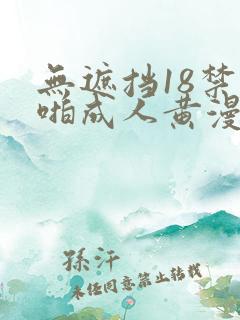 無遮挡18禁
啪成人黄漫
孫汗
未任同意禁止转载